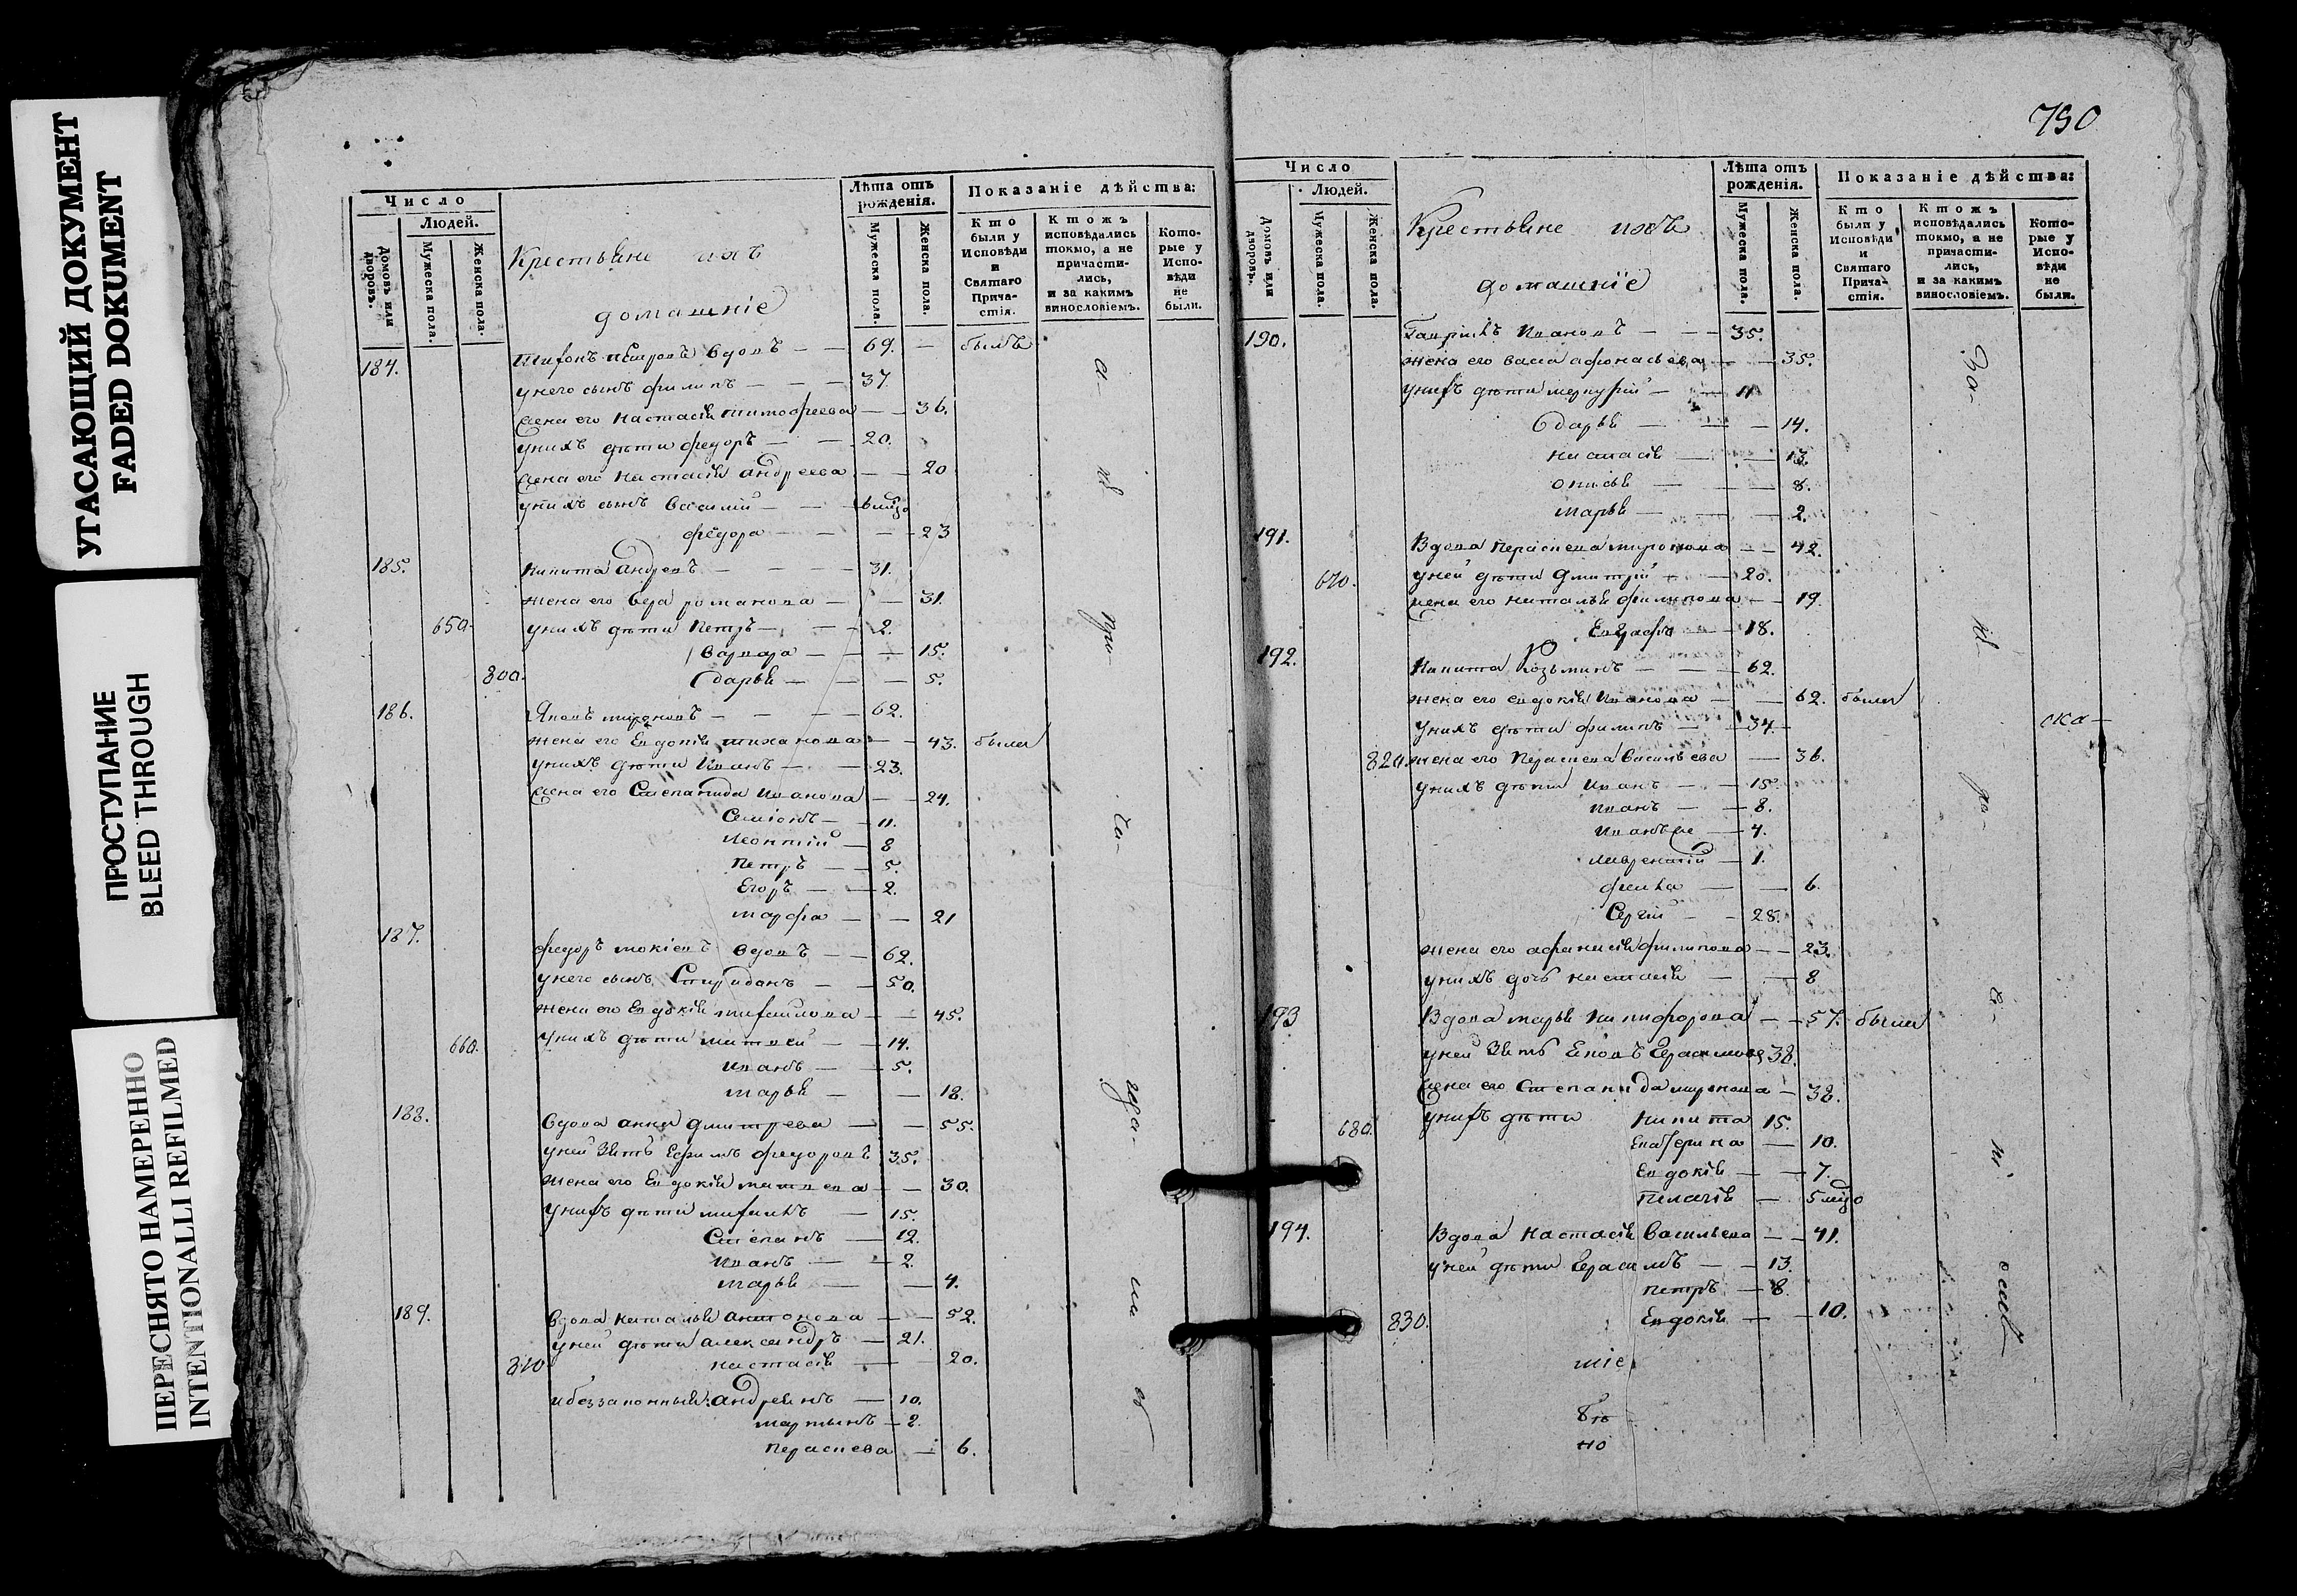 УГАСАЮЩИЙ ДОКУМЕНТ
FADED DOKUMENT
ПРОСТУПАНИЕ
BLEED THROUGH
ПЕРЕСНЯТО НАМЕРЕННО
INTENTIONALLI REFILMED
Число
Людей.
Домовъ или дворовъ.
Мужеска пола.
Женска пола.
Крестьяне ихъ
домашніе
Лѣта отъ рожденія.
Мужеска пола.
Женска пола.
Показаніе дѣйства:
Кто были у Исповѣди и Святаго Причастія.
Ктожъ исповѣдались токмо, а не причастились, и за какимъ винословіемъ.
Которые у Исповѣди не были.
184. 69. — былъ
у него сынъ филипъ — — — 37
жена его настасія тимофеева — — 36.
у нихъ дѣти федоръ — — 20.
жена его настасія андреева — — 20
у нихъ сынъ василій — —
федора — — — 23
185. никита андреевъ — — — 31.
жена его вера романова — — 31.
650. у нихъ дѣти петръ — — 2.
варвара — — — 15.
800. дарья — — — 5.
186. мироновъ — — — 62.
жена его евдокія — — 43. были
у нихъ дѣти иванъ — — 23.
жена его степанида иванова — — 24.
семіонъ — — 11.
леонтій — 8
петръ — — 5.
егоръ — — 2.
марфа — — 21
187. федоръ мокіевъ вдовъ — — 62.
у него сынъ спиридонъ — — 50.
жена его евдокія михайлова — — 45.
660. у нихъ дѣти матвей — — 14.
иванъ — — 5.
марья — — 18.
188. вдова анна дмитрева — — 55.
у ней зять ефимъ федоровъ 35.
жена его евдокія матвеева — — 30.
у нихъ дѣти михаилъ — 15.
степанъ — 12.
иванъ — — 2.
марья — — 4.
189. вдова наталья антонова — — 52.
у ней дѣти александръ — 21.
810 настасія — 20.
и беззаконныя: андреянъ — 10.
мартынъ — 2.
параскева — 6.
790
Число
Людей.
Домовъ или дворовъ.
Мужеска пола.
Женска пола.
Крестьяне ихъ
домашніе
Лѣта отъ рожденія.
Мужеска пола.
Женска пола.
Показаніе дѣйства:
Кто были у Исповѣди и Святаго Причастія.
Ктожъ исповѣдались токмо, а не причастились, и за какимъ винословіемъ.
Которые у Исповѣди не были.
190. гаврилъ ивановъ — — 35.
жена его васа афонасьева — — 35.
у нихъ дѣти меркурій — — 11
дарья — — — 14.
настасія — — 13.
— — 8.
марья — — — 2.
191. Вдова параскева миронова — — 42.
670. у ней дѣти дмитрій — — 20.
жена его наталья филипова — — 19.
евграфъ — — 18.
192. никита козьминъ — — — 62.
жена его евдокія иванова — — 62. были
у нихъ дѣти филипъ — — 34.
820. жена его параскева васильева — 36.
у нихъ дѣти иванъ — — 15.
иванъ — — 8.
иванъ же — 4.
лаврентій — 1.
фекла — — 6.
сергій — — 28.
жена его афанасія филипова — — 23.
у нихъ дочь настасія — — 8
193 Вдова марья никифорова — — 57. были
у ней зять 38.
жена его степанида миронова — 38.
680. у нихъ дѣти никита 15.
екатерина — 10.
евдокія — — 7.
пелагія —
194. Вдова настасія васильева — — 41.
у ней дѣти герасимъ — — 13.
петръ — 8.
830. евдокія — — 10.